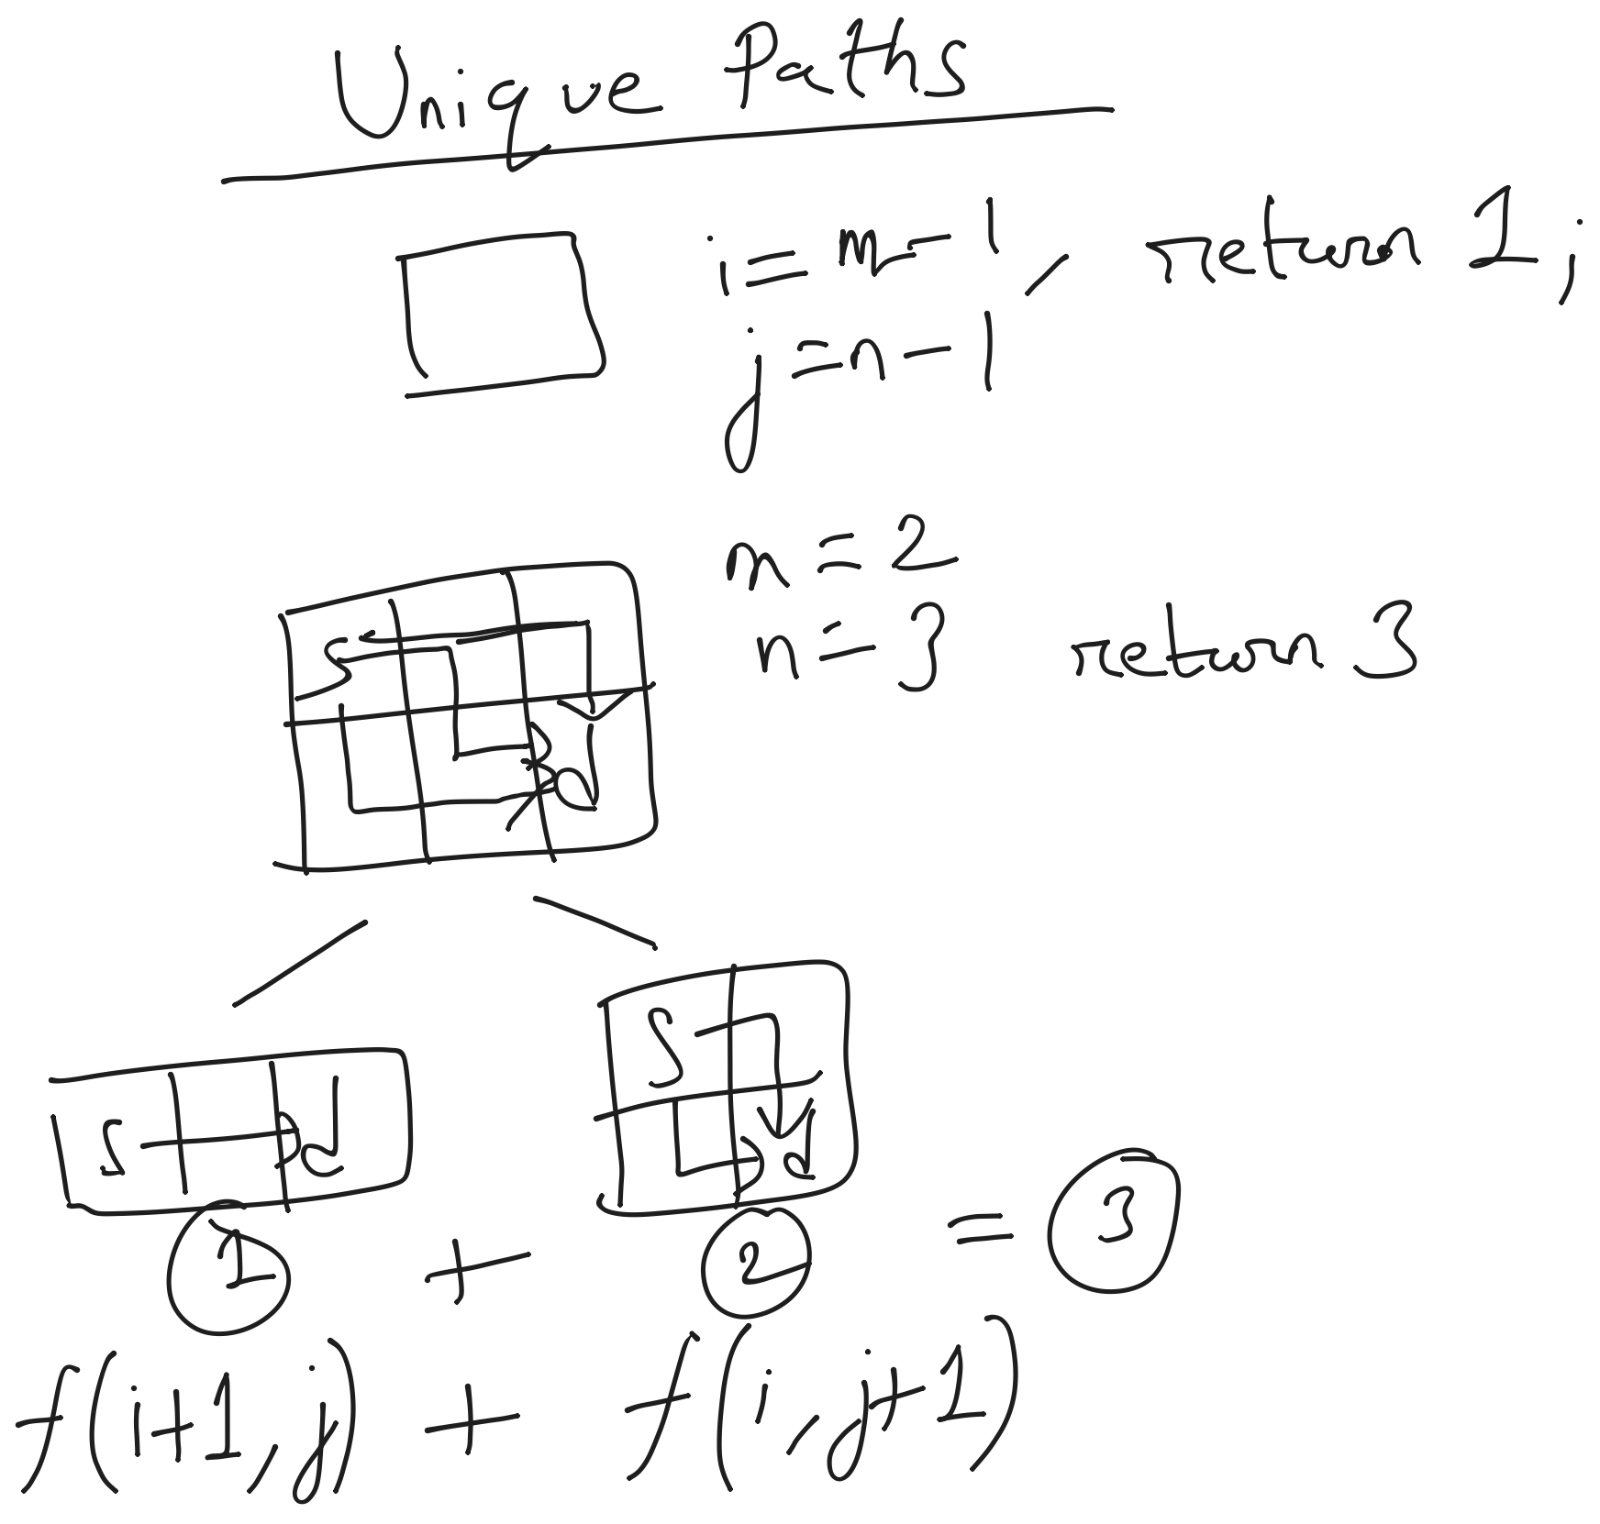 Unique Paths
i = m - 1 , return 1;
j = n - 1
m = 2
n = 3 return 3
S
d
S d
S
d
1 + 2 = 3
f(i+1, j) + f(i, j+1)